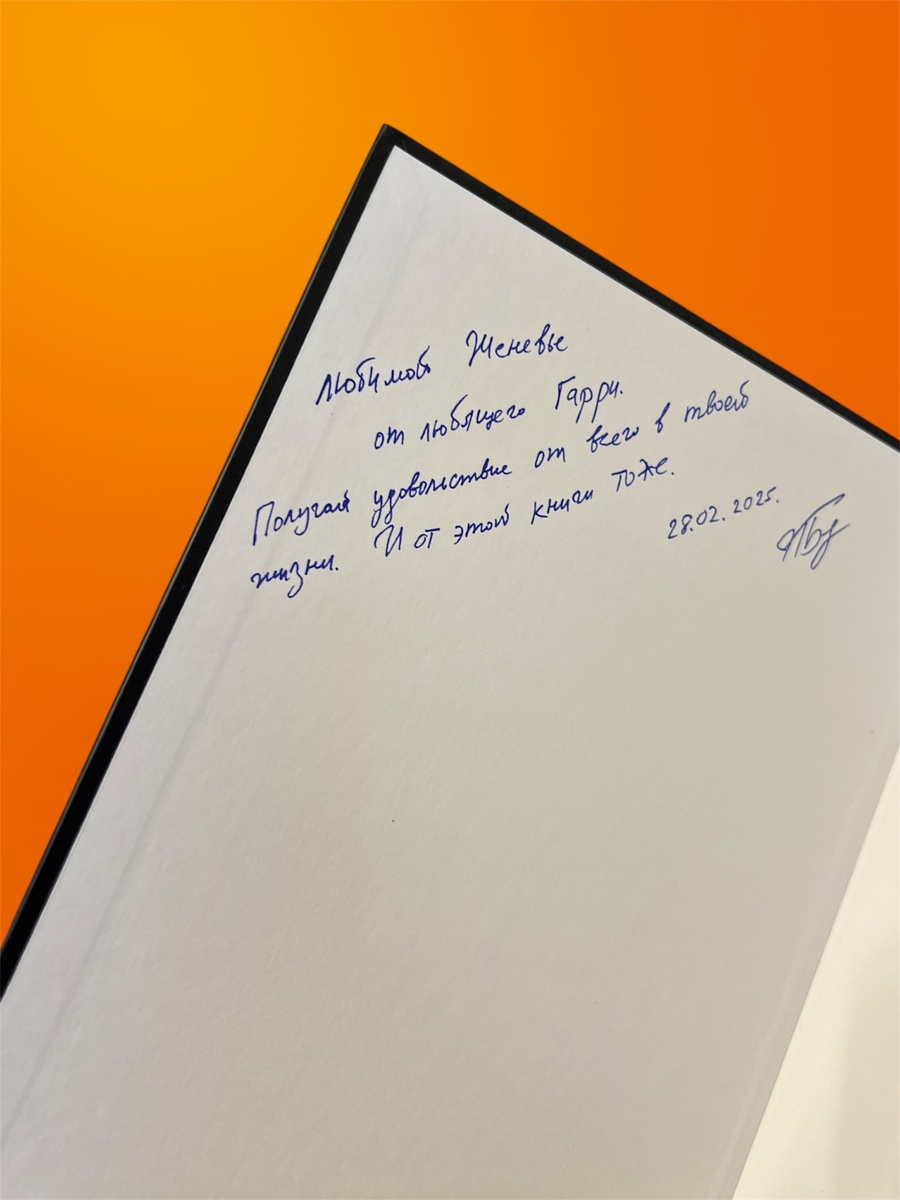 Любимой Женевье
от любящего Гарри.
Получай удовольствие от всего в твоей
жизни. И от этой книги тоже.
28.02.2025.